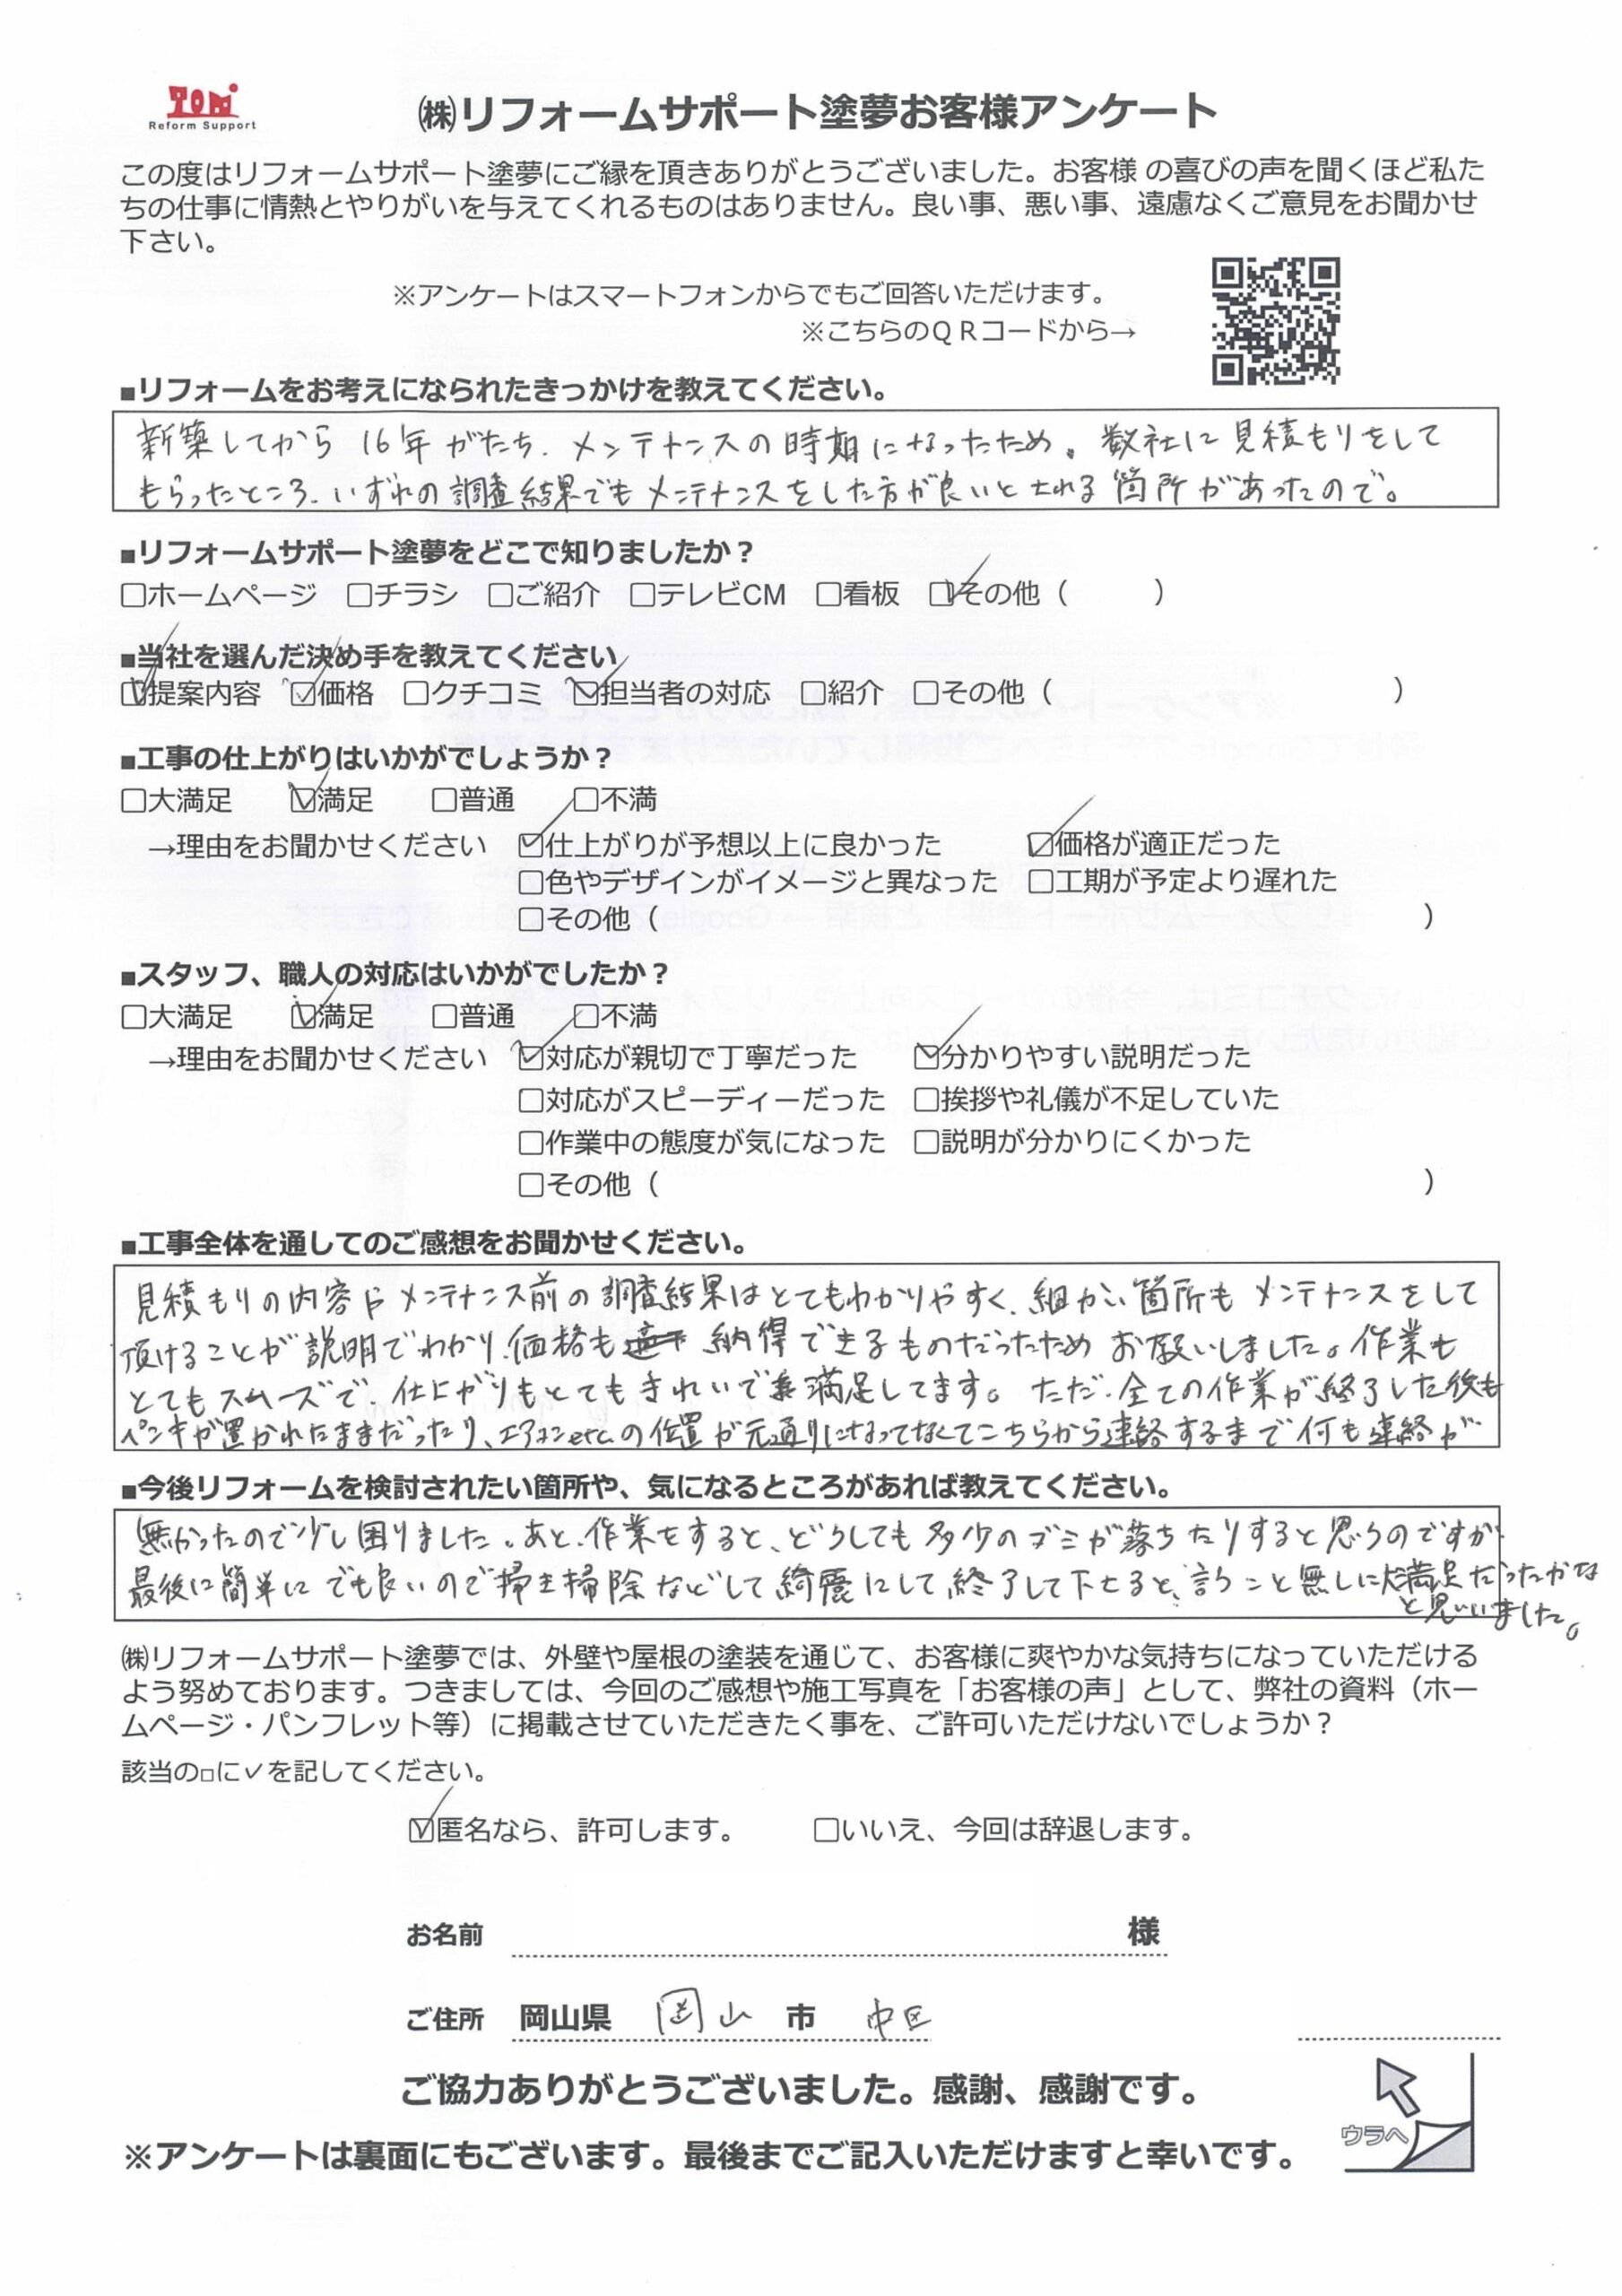 TOM
Reform Support
㈱リフォームサポート塗夢お客様アンケート
この度はリフォームサポート塗夢にご縁を頂きありがとうございました。お客様 の喜びの声を聞くほど私た
ちの仕事に情熱とやりがいを与えてくれるものはありません。良い事、悪い事、遠慮なくご意見をお聞かせ
下さい。
※アンケートはスマートフォンからでもご回答いただけます。
※こちらのＱＲコードから→
■リフォームをお考えになられたきっかけを教えてください。
新築してから 16年がたち、メンテナンスの時期になったため。数社に見積もりをして
もらったところ、いずれの調査結果でもメンテナンスをした方が良いとされる箇所があったので。
■リフォームサポート塗夢をどこで知りましたか？
□ホームページ □チラシ □ご紹介 □テレビCM □看板 ☑その他（ ）
■当社を選んだ決め手を教えてください
☑提案内容 ☑価格 □クチコミ ☑担当者の対応 □紹介 □その他（ ）
■工事の仕上がりはいかがでしょうか？
□大満足 ☑満足 □普通 □不満
→理由をお聞かせください ☑仕上がりが予想以上に良かった ☑価格が適正だった
□色やデザインがイメージと異なった □工期が予定より遅れた
□その他（ ）
■スタッフ、職人の対応はいかがでしたか？
□大満足 ☑満足 □普通 □不満
→理由をお聞かせください ☑対応が親切で丁寧だった ☑分かりやすい説明だった
□対応がスピーディーだった □挨拶や礼儀が不足していた
□作業中の態度が気になった □説明が分かりにくかった
□その他（ ）
■工事全体を通してのご感想をお聞かせください。
見積もりの内容やメンテナンス前の調査結果はとてもわかりやすく、細かい箇所もメンテナンスをして
頂けることが説明でわかり、価格も納得できるものだったためお願いしました。作業も
とてもスムーズで、仕上がりもとてもきれいで満足してます。ただ、全ての作業が終了した後も
ペンキが置かれたままだったり、エアコンetc.の位置が元通りになってなくてこちらから連絡するまで何も連絡が
■今後リフォームを検討されたい箇所や、気になるところがあれば教えてください。
無かったので少し困りました。あと、作業をすると、どうしても多少のゴミが落ちたりすると思うのですが
最後に簡単にでも良いので掃き掃除などして綺麗にして終了して下さると、言うこと無しに大満足だったかな
と思いました。
㈱リフォームサポート塗夢では、外壁や屋根の塗装を通じて、お客様に爽やかな気持ちになっていただける
よう努めております。つきましては、今回のご感想や施工写真を「お客様の声」として、弊社の資料（ホー
ムページ・パンフレット等）に掲載させていただきたく事を、ご許可いただけないでしょうか？
該当の□に✓を記してください。
☑匿名なら、許可します。 □いいえ、今回は辞退します。
お名前 様
ご住所 岡山県 岡山 市 中区
ご協力ありがとうございました。感謝、感謝です。
ウラへ
※アンケートは裏面にもございます。最後までご記入いただけますと幸いです。